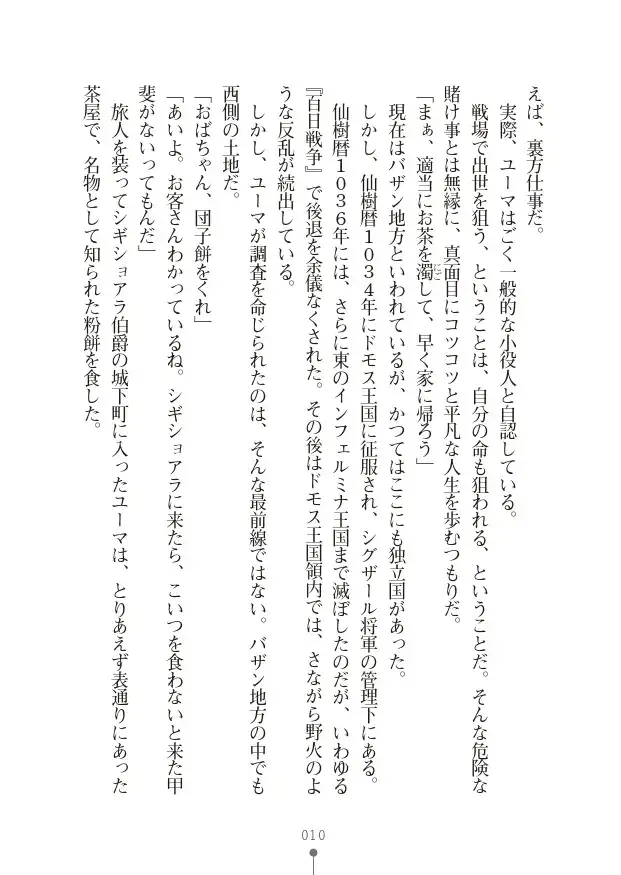 えば、裏方仕事だ。
　実際、ユーマはごく一般的な小役人と自認している。
　戦場で出世を狙う、ということは、自分の命も狙われる、ということだ。そんな危険な
賭け事とは無縁に、真面目にコツコツと平凡な人生を歩むつもりだ。
「まぁ、適当にお茶を濁にごして、早く家に帰ろう」
　現在はバザン地方といわれているが、かつてはここにも独立国があった。
　しかし、仙樹暦１０３４年にドモス王国に征服され、シグザール将軍の管理下にある。
　仙樹暦１０３６年には、さらに東のインフェルミナ王国まで滅ぼしたのだが、いわゆる
『百日戦争』で後退を余儀なくされた。その後はドモス王国領内では、さながら野火のよ
うな反乱が続出している。
　しかし、ユーマが調査を命じられたのは、そんな最前線ではない。バザン地方の中でも
西側の土地だ。
「おばちゃん、団子餅をくれ」
「あいよ。お客さんわかっているね。シギショアラに来たら、こいつを食わないと来た甲
斐がないってもんだ」
　旅人を装ってシギショアラ伯爵の城下町に入ったユーマは、とりあえず表通りにあった
茶屋で、名物として知られた粉餅を食した。
010